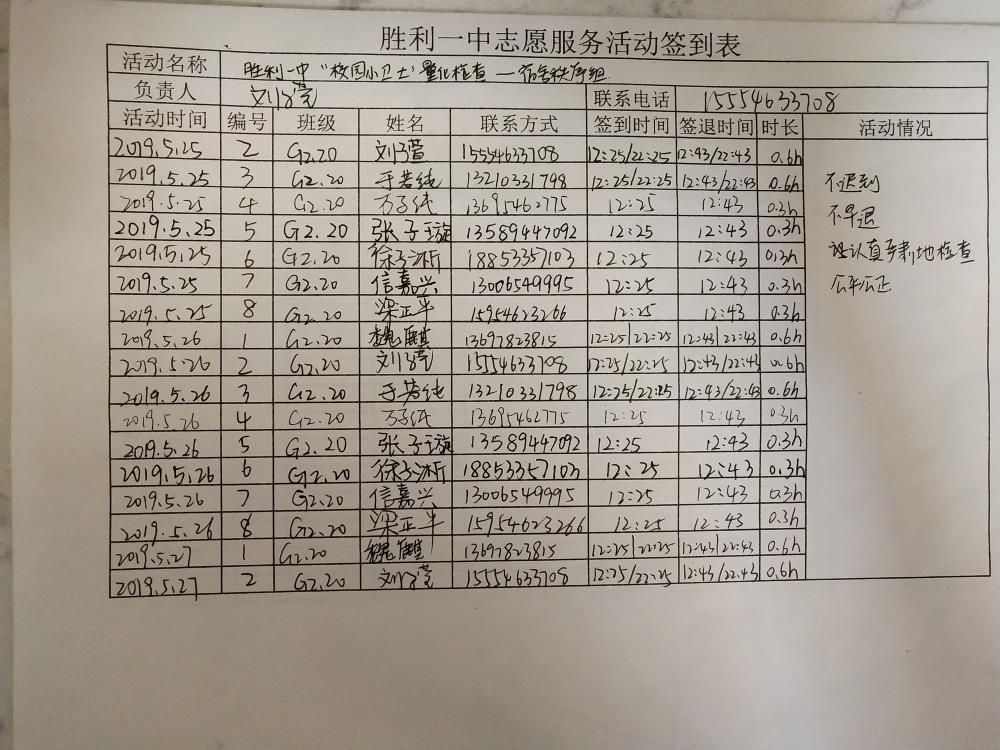 胜利一中志愿服务活动签到表
活动名称 胜利一中"校园小卫士"量化检查—宿舍秩序组
负责人 刘子萱 联系电话 15554633708
活动时间 编号 班级 姓名 联系方式 签到时间 签退时间 时长 活动情况
2019.5.25 2 G2.20 刘子萱 15554633708 12:25/22:25 12:43/22:43 0.6h
2019.5.25 3 G2.20 于若纯 13210331798 12:25/22:25 12:43/22:43 0.6h 不迟到
2019.5.25 4 G2.20 万子纯 13695462775 12:25 12:43 0.3h 不早退
2019.5.25 5 G2.20 张子璇 13589447092 12:25 12:43 0.3h
2019.5.25 6 G2.20 徐子淅 18853357103 12:25 12:43 0.3h 认真严肃地检查
2019.5.25 7 G2.20 信嘉兴 13006549995 12:25 12:43 0.3h 公平公正
2019.5.25 8 G2.20 梁正平 15954623266 12:25 12:43 0.3h
2019.5.26 1 G2.20 魏麒 13697823815 12:25/22:25 12:43/22:43 0.6h
2019.5.26 2 G2.20 刘子萱 15554633708 12:25/22:25 12:43/22:43 0.6h
2019.5.26 3 G2.20 于若纯 13210331798 12:25/22:25 12:43/22:43 0.6h
2019.5.26 4 G2.20 万子纯 13695462775 12:25 12:43 0.3h
2019.5.26 5 G2.20 张子璇 13589447092 12:25 12:43 0.3h
2019.5.26 6 G2.20 徐子淅 18853357103 12:25 12:43 0.3h
2019.5.26 7 G2.20 信嘉兴 13006549995 12:25 12:43 0.3h
2019.5.26 8 G2.20 梁正平 15954623266 12:25 12:43 0.3h
2019.5.27 1 G2.20 魏麒 13697823815 12:25/22:25 12:43/22:43 0.6h
2019.5.27 2 G2.20 刘子萱 15554633708 12:25/22:25 12:43/22:43 0.6h